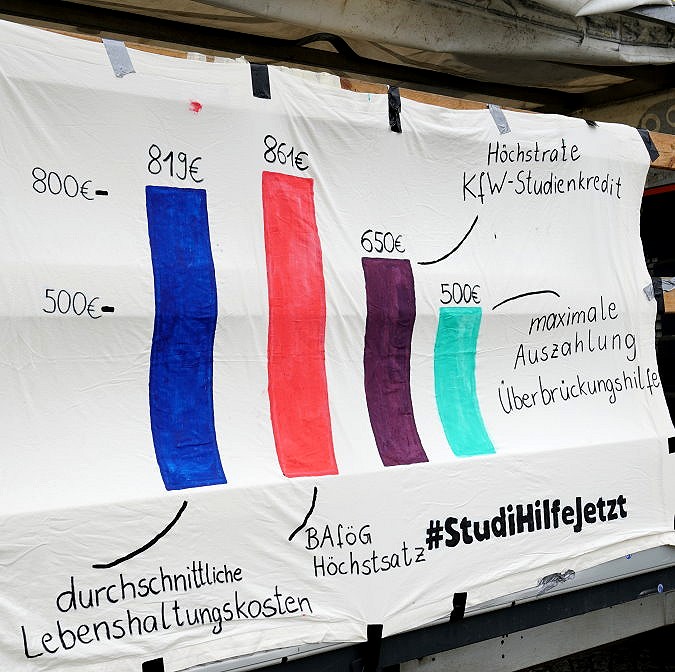 800€
500€
819€
861€
650€
500€
Höchstrate
KfW-Studienkredit
maximale
Auszahlung
Überbrückungshilfe
durchschnittliche
Lebenshaltungskosten
BAföG
Höchstsatz
#StudiHilfeJetzt